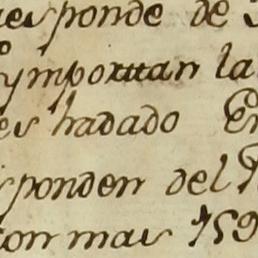 responde de
ymportan la
es hadado En
sponden del
con mas 159